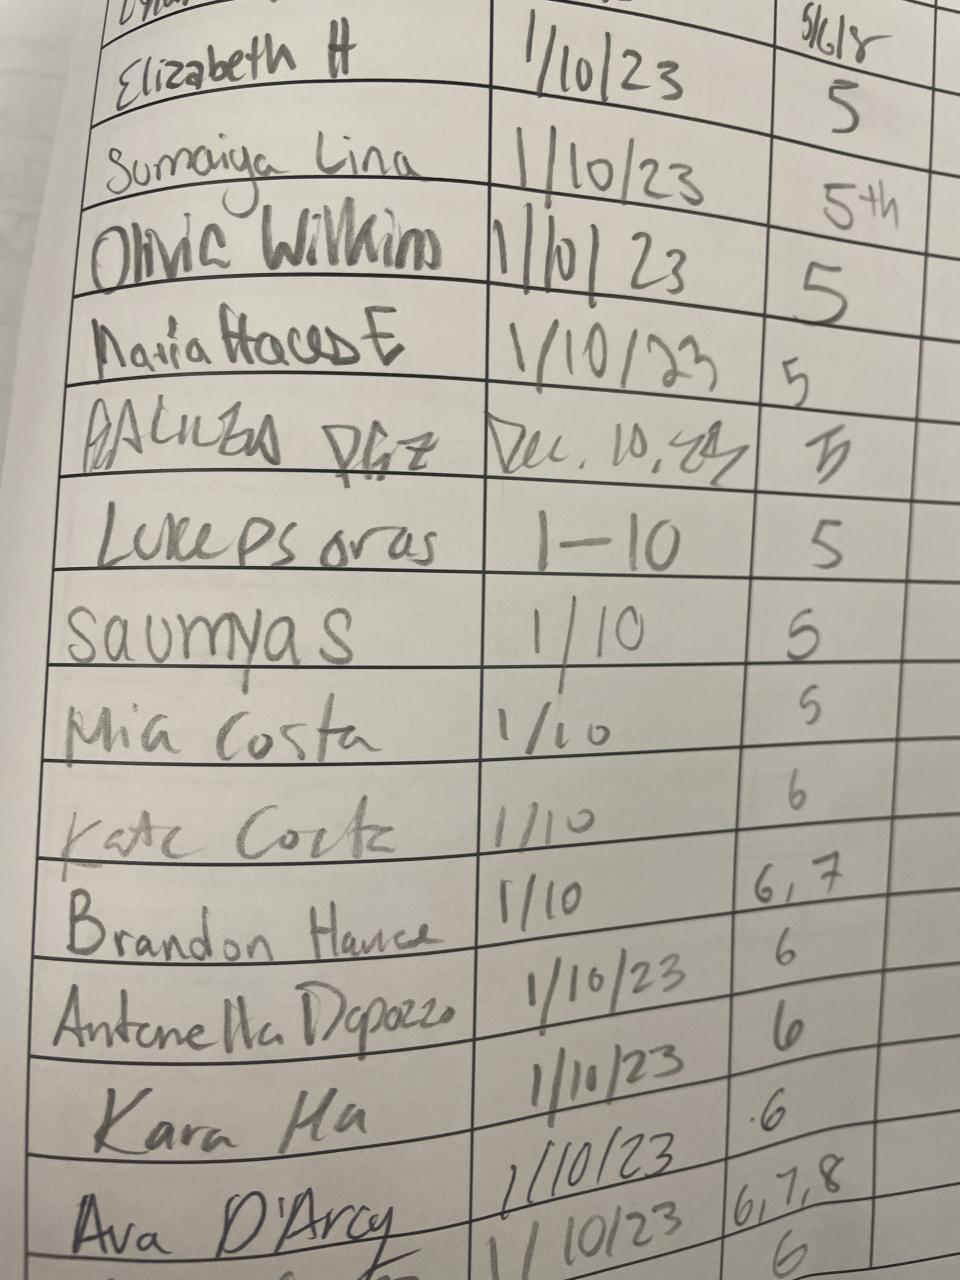 5/6/8
Elizabeth H 1/10/23 5
Sumaiya Lina 1/10/23 5th
Olivia Wilkins 1/10/23 5
Maria Haces E 1/10/23 5
Dec. 10, 23 5
Luke Psaras 1-10 5
Saumya S 1/10 5
Mia Costa 1/10 5
Kate Costa 1/10 6
Brandon Hance 1/10 6,7
Antonella Dapozzo 1/10/23 6
Kara Ha 1/10/23 6
Ava D'Arcy 1/10/23 6
1/10/23 6,7,8
6